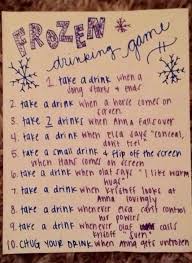 FROZEN
drinking game
1. take a drink when a
song starts & ends
2. take a drink when a horse comes on
screen
3. take 2 drinks when Anna falls over
4. take a drink when elsa says "conceal,
don't feel"
5. take a small drink & flip off the screen
when Hans comes on screen
6. take a drink when olaf says "I like warm
hugs"
7. take a drink when kristoff looks at
anna lovingly
8. take a drink whenever elsa can't control
her powers
9. take a drink whenever olaf calls
kristoff "sven"
10. CHUG YOUR DRINK when anna gets unfrozen